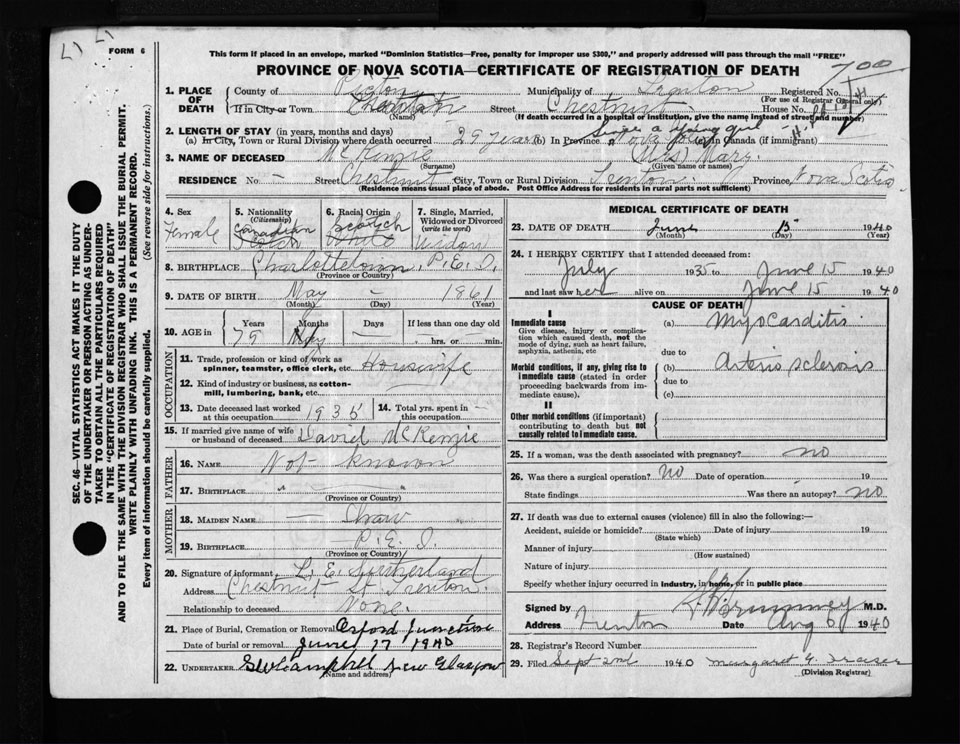 FORM 6
This form if placed in an envelope, marked "Dominion Statistics—Free, penalty for improper use $300," and properly addressed will pass through the mail "FREE"
PROVINCE OF NOVA SCOTIA—CERTIFICATE OF REGISTRATION OF DEATH
700
1. PLACE OF DEATH
County of Pictou Municipality of Trenton Registered No.
(For use of Registrar General only)
If in City or Town Trenton Street Chestnut House No.
(Name) (If death occurred in a hospital or institution, give the name instead of street and number)
2. LENGTH OF STAY (in years, months and days)
Since a young girl
(a) In City, Town or Rural Division where death occurred 29 years (b) In Province (c) in Canada (if immigrant)
3. NAME OF DECEASED McKenzie (Mrs) Mary.
(Surname) (Given name or names)
RESIDENCE No. — Street Chestnut City, Town or Rural Division Trenton Province Nova Scotia
(Residence means usual place of abode. Post Office Address for residents in rural parts not sufficient)
4. Sex Female
5. Nationality (Citizenship) Canadian
6. Racial Origin Scotch White
7. Single, Married, Widowed or Divorced (write the word) Widow
8. BIRTHPLACE Charlottetown, P.E.I.
(Province or Country)
9. DATE OF BIRTH May — 1861
(Month) (Day) (Year)
10. AGE in Years 75 Months Days — If less than one day old
hrs. or min.
OCCUPATION
11. Trade, profession or kind of work as spinner, teamster, office clerk, etc. Housewife
12. Kind of industry or business, as cotton-mill, lumbering, bank, etc.
13. Date deceased last worked at this occupation 1935
14. Total yrs. spent in this occupation —
15. If married give name of wife or husband of deceased David McKenzie
FATHER
16. NAME Not known
17. BIRTHPLACE " —
(Province or Country)
MOTHER
18. MAIDEN NAME — Shaw
19. BIRTHPLACE P.E.I.
(Province or Country)
20. Signature of informant L. E. Sutherland
Address Chestnut St Trenton.
Relationship to deceased None.
21. Place of Burial, Cremation or Removal Oxford Junction
Date of burial or removal June 17 1940
22. UNDERTAKER G W Campbell New Glasgow
(Name and address)
MEDICAL CERTIFICATE OF DEATH
23. DATE OF DEATH June 15 1940
(Month) (Day) (Year)
24. I HEREBY CERTIFY that I attended deceased from:
July 1935 to June 15 1940
and last saw her alive on June 15 1940
CAUSE OF DEATH
I
Immediate cause
Give disease, injury or complication which caused death, not the mode of dying, such as heart failure, asphyxia, asthenia, etc
(a) Myocarditis
due to
Morbid conditions, if any, giving rise to immediate cause (stated in order proceeding backwards from immediate).
(b) Arterio sclerosis
due to
(c)
II
Other morbid conditions (if important) contributing to death but not causally related to immediate cause.
25. If a woman, was the death associated with pregnancy? no
26. Was there a surgical operation? No Date of operation 19
State findings Was there an autopsy? no
27. If death was due to external causes (violence) fill in also the following:—
Accident, suicide or homicide? Date of injury 19
(State which)
Manner of injury
(How sustained)
Nature of injury
Specify whether injury occurred in industry, in home, or in public place
Signed by M.D.
Address Trenton Date Aug 6 1940
28. Registrar's Record Number
29. Filed Sept 2nd 1940 Margaret Y. Fraser
(Division Registrar)
SEC. 46—VITAL STATISTICS ACT MAKES IT THE DUTY
OF THE UNDERTAKER OR PERSON ACTING AS UNDER-
TAKER TO OBTAIN ALL THE PARTICULARS REQUIRED
IN THE "CERTIFICATE OF REGISTRATION OF DEATH"
AND TO FILE THE SAME WITH THE DIVISION REGISTRAR WHO SHALL ISSUE THE BURIAL PERMIT.
WRITE PLAINLY WITH UNFADING INK. THIS IS A PERMANENT RECORD.
Every item of information should be carefully supplied. (See reverse side for instructions.)